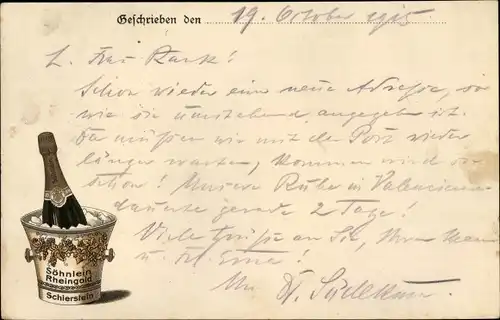 Geschrieben den 19. October 1915
L. Frau
Schon wieder eine neue Adresse, so
wie sie umstehend angegeben ist.
Da müssen wir mit der Post wieder
länger warten, kommen wird sie
schon! Unsere Ruhe in Valencienn
dauerte gerade 2 Tage!
Viele Grüsse an Sie, Ihren Mann
u. Frl. Erna!
Ihr Dr.
Söhnlein
Rheingold
Schierstein